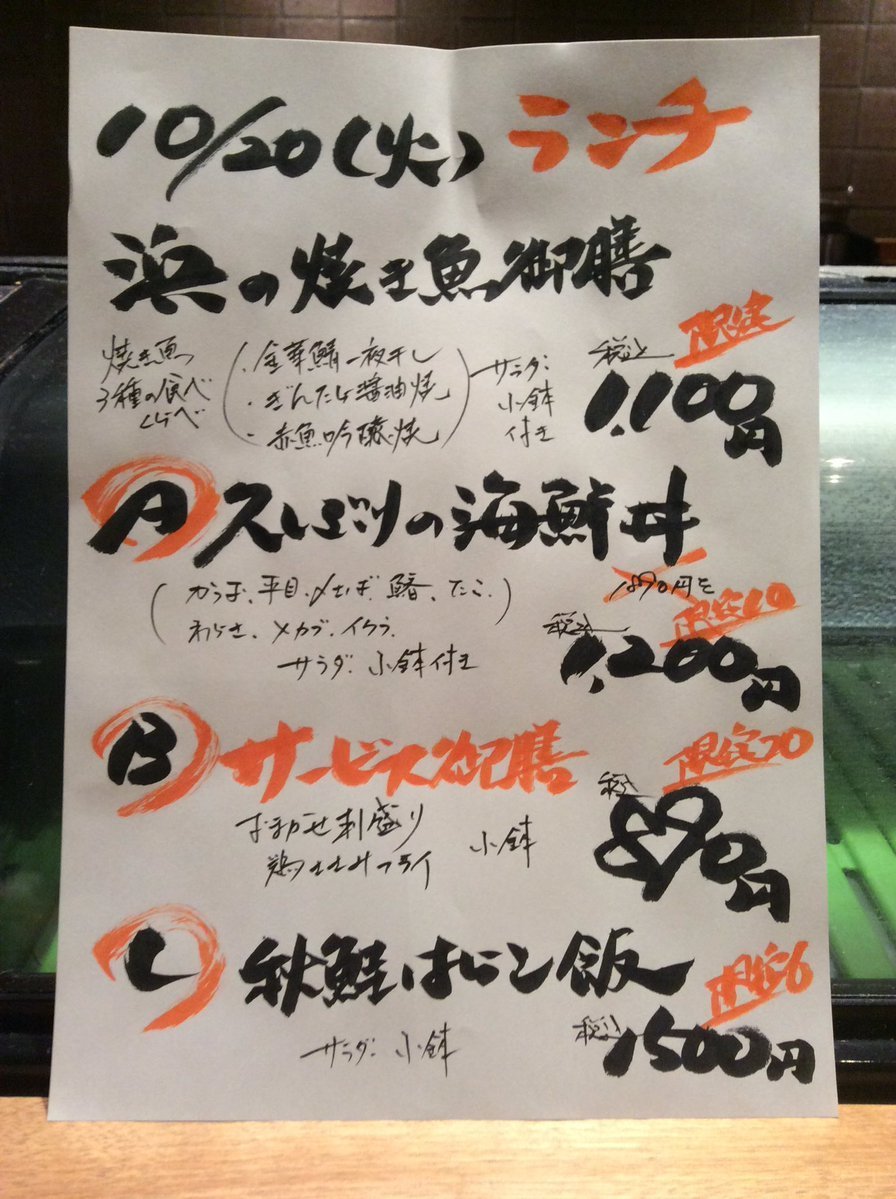 10/20(火) ランチ
浜の焼き魚御膳
焼き魚
3種の食べ
くらべ
・金華鯖一夜干し
・ぎんだら醤油焼
・赤魚吟醸焼
サラダ・
小鉢
付き
限定
税込
1,100円
A 久しぶりの海鮮丼
(かつお、平目、〆さば、鰆、たこ、
わらさ、メカブ、イクラ)
サラダ・小鉢付き
円を
限定10
税込
1,200円
B サービス御膳
限定20
おまかせ刺盛り
鶏ささみフライ
小鉢
税込
890円
C 秋鮭はらこ飯
限定6
サラダ・小鉢
税込
1500円